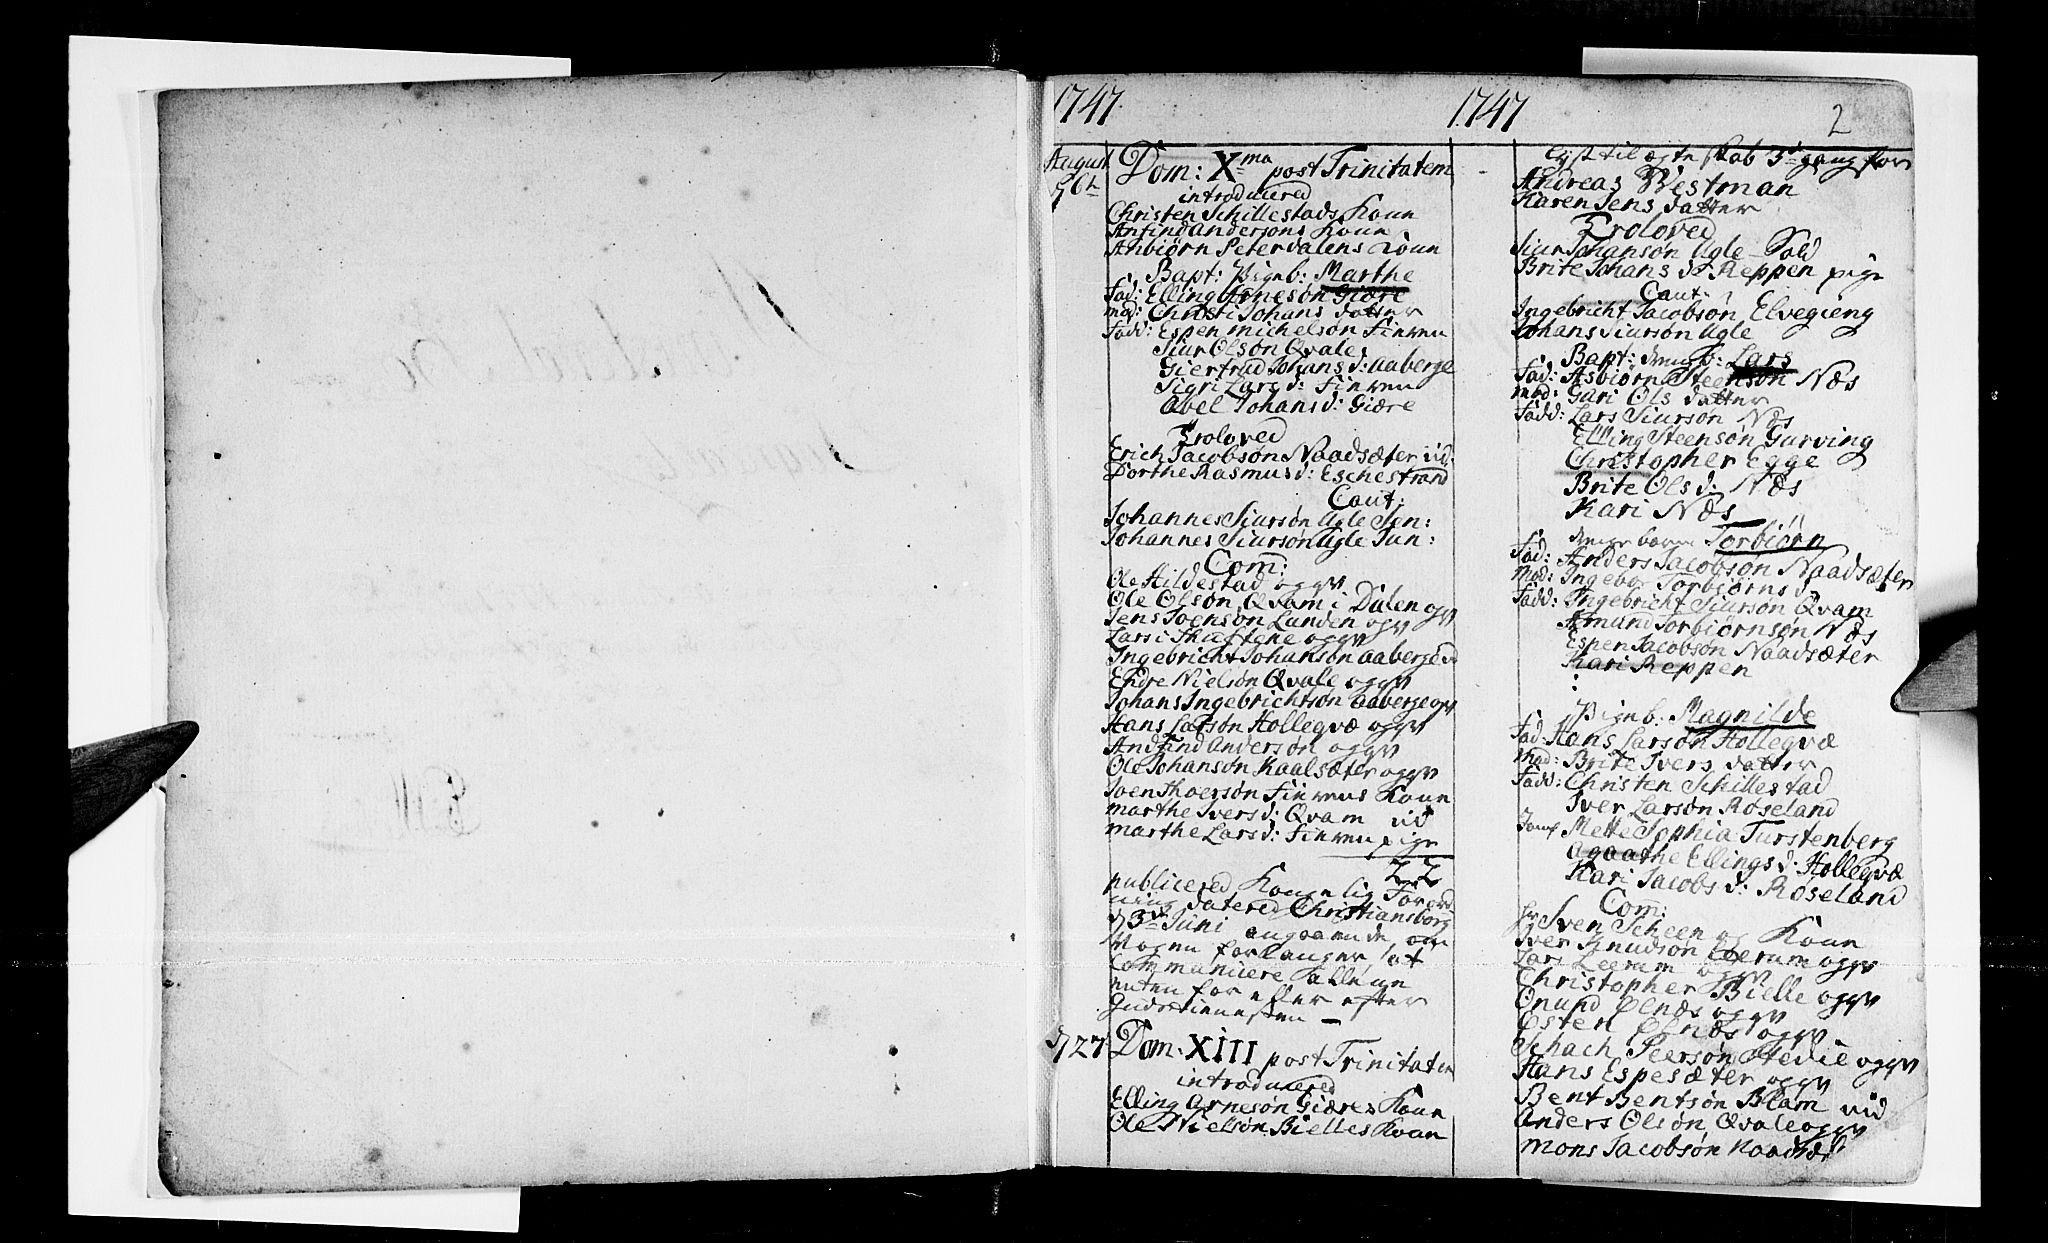 1747
August
d 6te
Dom: Xma post Trinitatem
introducered
Christen Schillestads Kone
Anfind andersøns Kone
Asbiørn Peterdalens Kone
Bapt: Pigeb: Marthe
Fad: Elling Arnesøn Giære
mod: Christi Johans datter
Fadd: Espen michelsøn Finven
Siur Olsøn Qvale
Giertrud Johans d: aaberge
Sigri Lars d: Finven
Abel Johans d: Giære
Troloved
Erich Jacobsøn Naadsæter
Dorthe Rasmus d: Eschestrand
Caut:
Johannes Siursøn Ugle Sen:
Johannes Siursøn Ugle Jun:
Com:
Ole Hildestad og
Ole Olsøn Qvam i Dalen
Jens Svensøn Lunden
Lars i
Ingebricht Johansøn aaberge
Endre Nielsøn Qvale
Johans Ingebrichtsøn aaberge
Hans Larsøn Hollegvæ
Andfind andersøn
Ole Johansøn Kaalsæter
Finvens Kone
marthe Ivers d: Qvam
marthe Lars d: Finven pige
22
publicered Kongelig Forord
ning datered Christiansborg
d 3de Juni angaaende, om
Nogen forlanger at
Communicere
uden for eller efter
Gudstienesten
d 27
Dom: XIII post Trinitatem
introducered
Elling Arnesøn Giæres Kone
Ole Nielsøn Bielles Kone
1747
2
lyst til ægteskab 3die gang for
Andreas Westman
Karen Jens datter
Troloved
Siur Johansøn Ugle Sold
Brite Johans d: Reppen pige
Caut:
Ingebricht Jacobsøn Elvegieng
Johans Siursøn Ugle
Bapt: drengb: Lars
Fad: Asbiørn Steensøn Næs
mod: Gari Ols datter
Fadd: Lars Siursøn Næs
Elling Steensøn Garving
Christopher Egge
Brite Ols d: Næs
Kari Næs
drengebarn Torbiørn
Fad: Anders Jacobsøn Naadsæter
Mod: Ingebor Torbiørns d:
Fadd: Ingebricht Siursøn Qvam
Amund Torbiørnsøn Næs
Espen Jacobsøn Naadsæter
Kari Reppen
Pigeb: Magnilde
Fad: Hans Larsøn Hollegvæ
Mod: Brite Ivers datter
Fadd: Christen Schillestad
Iver Larsøn Røseland
Jomf Mette Sophia Furstenberg
Agaathe Ellings d: Hollegvæ
Kari Jacobs d: Røseland
Com:
hr Sven Scheen og Kone
Iver Knudsøn Leerum
Lars Leerum
Christopher Bielle
Onund Elnæs
Østen Elnæs
Schach Peersøn Hedle
Hans Espesæter
Bent Bentsøn Blam
Anders Olsøn Qvale
mons Jacobsøn Naadsæt